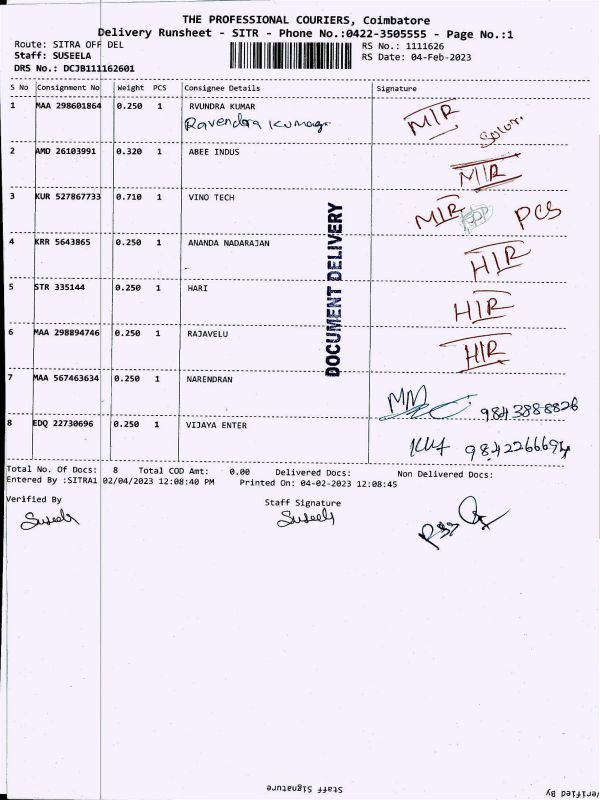 THE PROFESSIONAL COURIERS, Coimbatore
Delivery Runsheet - SITR - Phone No.:0422-3505555 - Page No.:1
Route: SITRA OFF DEL
RS No.: 1111626
Staff: SUSEELA
RS Date: 04-Feb-2023
DRS No.: DCJB111162601
S No Consignment No Weight PCS Consignee Details Signature
1 MAA 298601864 0.250 1 RVUNDRA KUMAR MIR
Ravendra Kumar
2 AMD 26103991 0.320 1 ABEE INDUS MIR
3 KUR 527867733 0.710 1 VINO TECH MIR PCS
4 KRR 5643865 0.250 1 ANANDA NADARAJAN HIR
5 STR 335144 0.250 1 HARI HIR
6 MAA 298894746 0.250 1 RAJAVELU HIR
7 MAA 567463634 0.250 1 NARENDRAN 9843888826
8 EDQ 22730696 0.250 1 VIJAYA ENTER
DOCUMENT DELIVERY
Total No. Of Docs: 8 Total COD Amt: 0.00 Delivered Docs: Non Delivered Docs:
Entered By :SITRA1 02/04/2023 12:08:40 PM Printed On: 04-02-2023 12:08:45
Verified By Staff Signature
Suseela Suseela
Staff Signature
Verified By